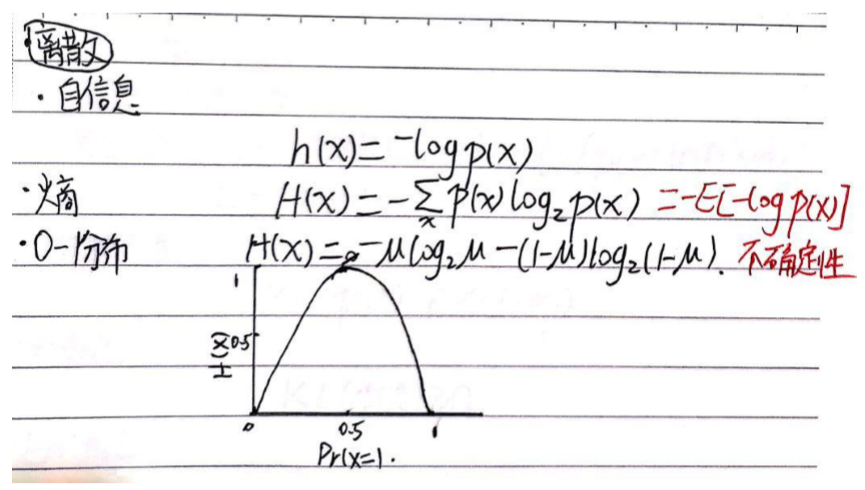 ·离散
·自信息
h(x)=-log p(x)
·熵 H(x)=-∑ₓ p(x) log₂ p(x) =-E[-log p(x)]
·0-1分布 H(x)=-μlog₂μ-(1-μ)log₂(1-μ). 不确定性
1
0.5
H(x)
0 0.5 1
Pr(x=1.